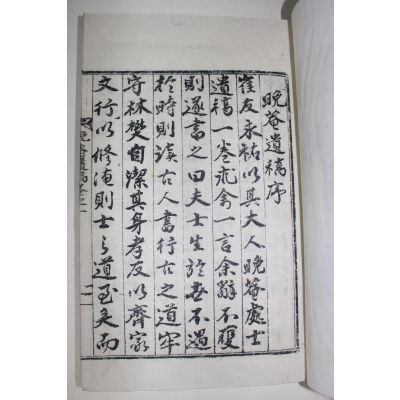 晩菴遺稿序
崔友永祐以其大人晩菴處士
遺稿一卷示余一言余辭不獲
則遂書之曰夫士生於世不遇
於時則讀古人書行古之道牢
守林樊自潔其身孝友以齊家
文行以修德則士之道至矣而
晩菴遺稿卷之一